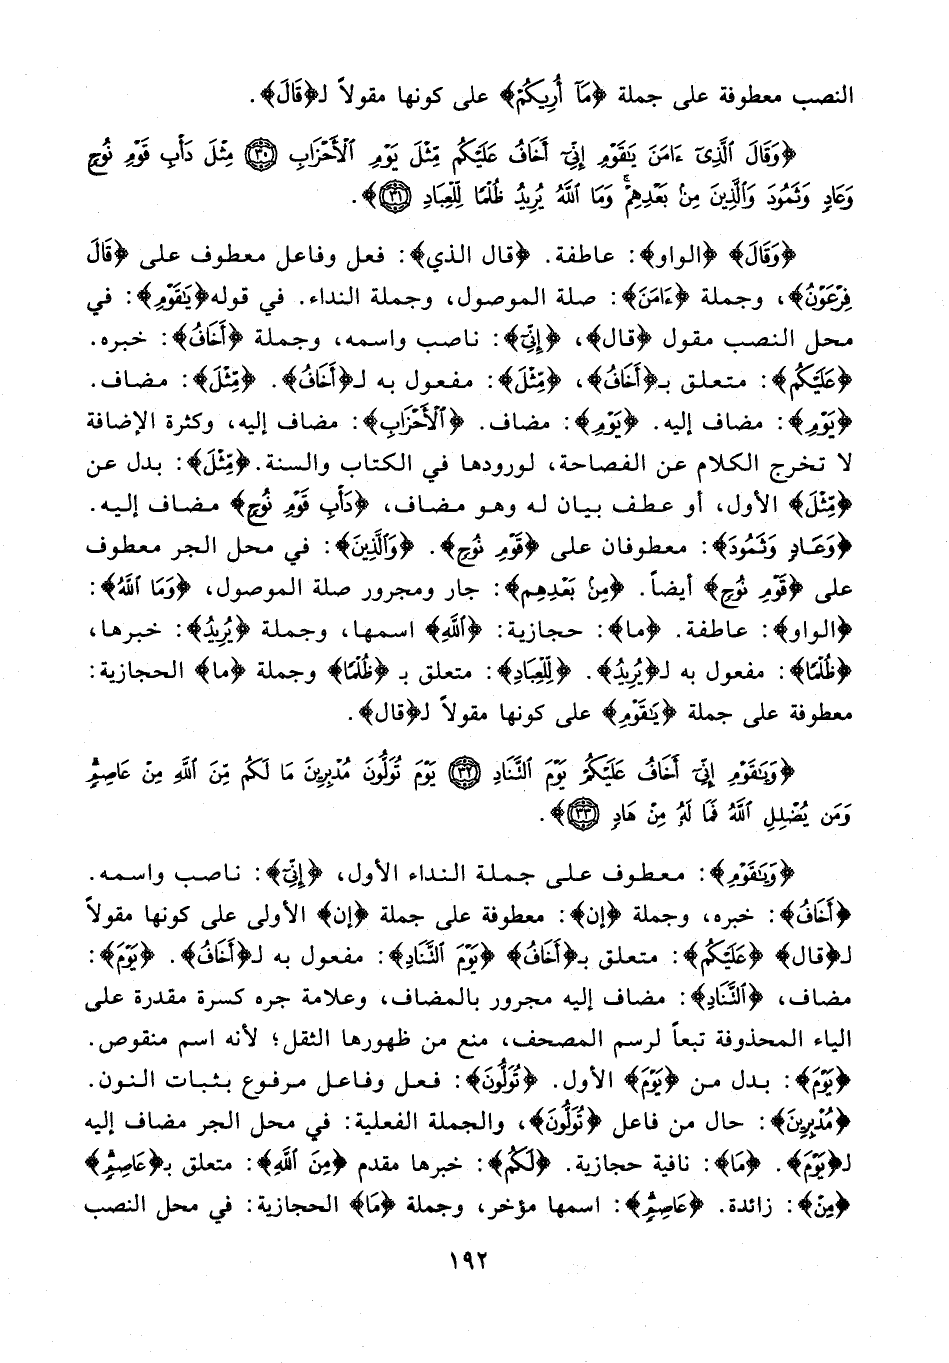 النصب معطوفة على جملة ﴿مَآ أُرِيكُمْ﴾ على كونها مقولاً لـ﴿قَالَ﴾.
﴿وَقَالَ ٱلَّذِىٓ ءَامَنَ يَٰقَوْمِ إِنِّىٓ أَخَافُ عَلَيْكُم مِّثْلَ يَوْمِ ٱلْأَحْزَابِ ٣٠ مِثْلَ دَأْبِ قَوْمِ نُوحٍ
وَعَادٍ وَثَمُودَ وَٱلَّذِينَ مِنۢ بَعْدِهِمْ ۚ وَمَا ٱللَّهُ يُرِيدُ ظُلْمًا لِّلْعِبَادِ ٣١﴾.
﴿وَقَالَ﴾ ﴿الواو﴾: عاطفة. ﴿قال الذي﴾: فعل وفاعل معطوف على ﴿قَالَ
فِرْعَوْنُ﴾، وجملة ﴿ءَامَنَ﴾: صلة الموصول، وجملة النداء. في قوله﴿يَٰقَوْمِ﴾: في
محل النصب مقول ﴿قال﴾، ﴿إِنِّىٓ﴾: ناصب واسمه، وجملة ﴿أَخَافُ﴾: خبره.
﴿عَلَيْكُم﴾: متعلق بـ﴿أَخَافُ﴾، ﴿مِّثْلَ﴾: مفعول به لـ﴿أَخَافُ﴾. ﴿مِّثْلَ﴾: مضاف.
﴿يَوْمِ﴾: مضاف إليه. ﴿يَوْمِ﴾: مضاف. ﴿ٱلْأَحْزَابِ﴾: مضاف إليه، وكثرة الإضافة
لا تخرج الكلام عن الفصاحة، لورودها في الكتاب والسنة.﴿مِّثْلَ﴾: بدل عن
﴿مِّثْلَ﴾ الأول، أو عطف بيان له وهو مضاف، ﴿دَأْبِ قَوْمِ نُوحٍ﴾ مضاف إليه.
﴿وَعَادٍ وَثَمُودَ﴾: معطوفان على ﴿قَوْمِ نُوحٍ﴾. ﴿وَٱلَّذِينَ﴾: في محل الجر معطوف
على ﴿قَوْمِ نُوحٍ﴾ أيضاً. ﴿مِنۢ بَعْدِهِم﴾: جار ومجرور صلة الموصول، ﴿وَمَا ٱللَّهُ﴾:
﴿الواو﴾: عاطفة. ﴿ما﴾: حجازية: ﴿ٱللَّهِ﴾ اسمها، وجملة ﴿يُرِيدُ﴾: خبرها،
﴿ظُلْمًا﴾: مفعول به لـ﴿يُرِيدُ﴾. ﴿لِّلْعِبَادِ﴾: متعلق بـ ﴿ظُلْمًا﴾ وجملة ﴿ما﴾ الحجازية:
معطوفة على جملة ﴿يَٰقَوْمِ﴾ على كونها مقولاً لـ﴿قال﴾.
﴿وَيَٰقَوْمِ إِنِّىٓ أَخَافُ عَلَيْكُمْ يَوْمَ ٱلتَّنَادِ ٣٢ يَوْمَ تُوَلُّونَ مُدْبِرِينَ مَا لَكُم مِّنَ ٱللَّهِ مِنْ عَاصِمٍ ۗ
وَمَن يُضْلِلِ ٱللَّهُ فَمَا لَهُۥ مِنْ هَادٍ ٣٣﴾.
﴿وَيَٰقَوْمِ﴾: معطوف على جملة النداء الأول، ﴿إِنِّىٓ﴾: ناصب واسمه.
﴿أَخَافُ﴾: خبره، وجملة ﴿إن﴾: معطوفة على جملة ﴿إن﴾ الأولى على كونها مقولاً
لـ﴿قال﴾ ﴿عَلَيْكُم﴾: متعلق بـ﴿أَخَافُ﴾ ﴿يَوْمَ ٱلتَّنَادِ﴾: مفعول به لـ﴿أَخَافُ﴾. ﴿يَوْمَ﴾:
مضاف، ﴿ٱلتَّنَادِ﴾: مضاف إليه مجرور بالمضاف، وعلامة جره كسرة مقدرة على
الياء المحذوفة تبعاً لرسم المصحف، منع من ظهورها الثقل؛ لأنه اسم منقوص.
﴿يَوْمَ﴾: بدل من ﴿يَوْمَ﴾ الأول. ﴿تُوَلُّونَ﴾: فعل وفاعل مرفوع بثبات النون.
﴿مُدْبِرِينَ﴾: حال من فاعل ﴿تُوَلُّونَ﴾، والجملة الفعلية: في محل الجر مضاف إليه
لـ﴿يَوْمَ﴾. ﴿مَا﴾: نافية حجازية. ﴿لَكُم﴾: خبرها مقدم ﴿مِنَ ٱللَّهِ﴾: متعلق بـ﴿عَاصِمٍ ۗ﴾
﴿مِنْ﴾: زائدة. ﴿عَاصِمٍ ۗ﴾: اسمها مؤخر، وجملة ﴿مَا﴾ الحجازية: في محل النصب
١٩٢